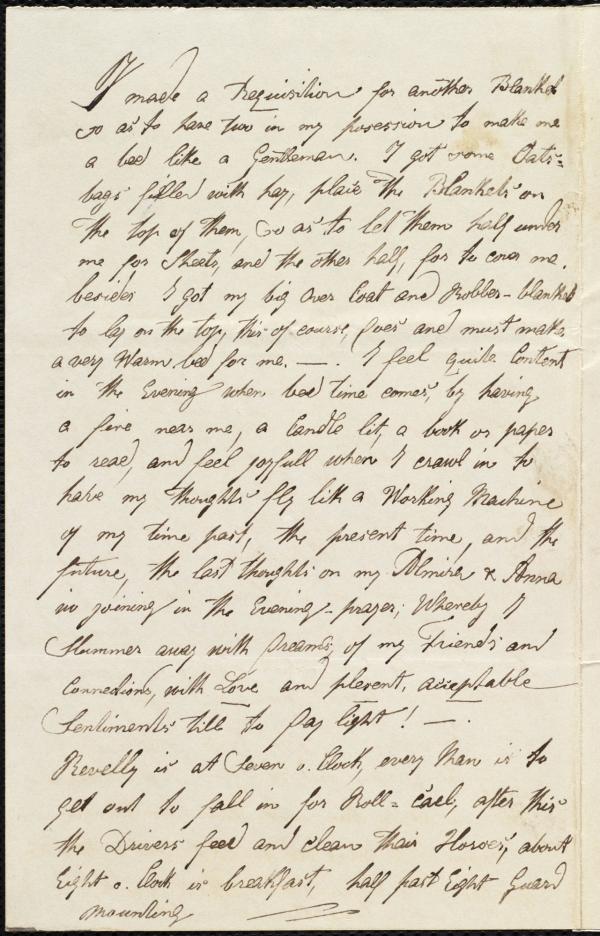 I made a Requisition for another Blanket
so as to have two in my posession to make me
a bed like a Gentleman. I got some Oats=
bags filled with hay, place the Blankets on
the top of them, so as to let them half under
me for Sheets, and the other half, for to cover me.
besides I got my big over Coat and Robber-blanket
to lay on the top, this of course, does and must make
a very Warm bed for me. —. I feel quite Content
in the Evening when bed time comes, by having
a fire near me, a Candle lit, a book or paper
to read, and feel joyfull when I crawl in to
have my thoughts fly lith a Working Machine
of my time past, the present time, and the
future, the last thoughts on my Almira & Anna
is joining in the Evening-prayer, Whereby I
Slummer away with Dreams, of my Friends and
Connedions, with Love and plesent, acceptable
Sentiments till to Day light! —.
Revelly is at Seven o. Clock, every Man is to
get out to fall in for Roll=Call, after this
the Drivers feed and clean their Horses, about
Eight o. Clock is breakfast, half past Eight Guard
mounting